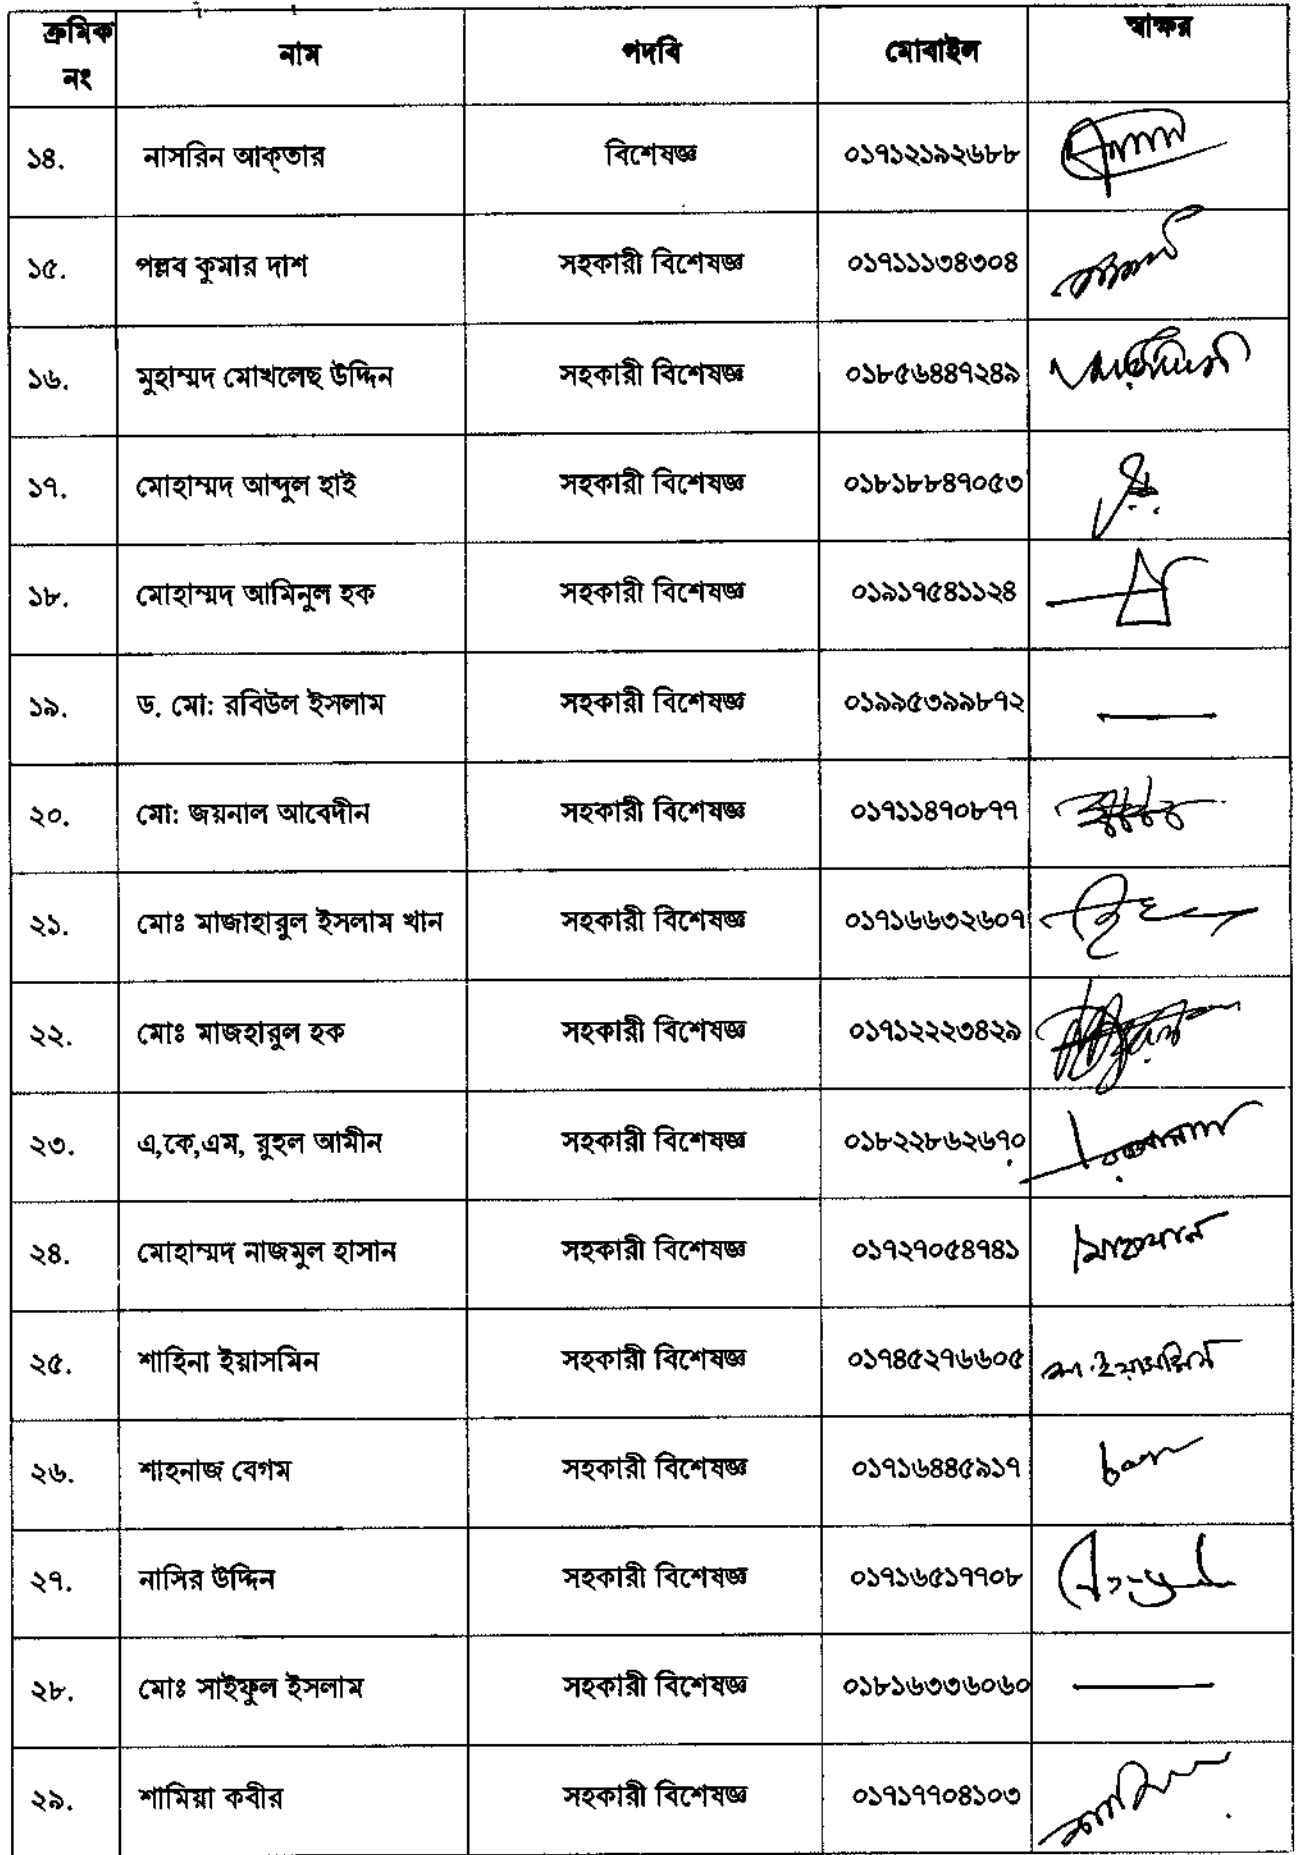 ক্রমিক নং নাম পদবি মোবাইল স্বাক্ষর
১৪. নাসরিন আক্‌তার বিশেষজ্ঞ ০১৭১২১৯২৬৮৮
১৫. পল্লব কুমার দাশ সহকারী বিশেষজ্ঞ ০১৭১১১৩৪৩০৪
১৬. মুহাম্মদ মোখলেছ উদ্দিন সহকারী বিশেষজ্ঞ ০১৮৫৬৪৪৭২৪৯
১৭. মোহাম্মদ আব্দুল হাই সহকারী বিশেষজ্ঞ ০১৮১৮৮৪৭০৫৩
১৮. মোহাম্মদ আমিনুল হক সহকারী বিশেষজ্ঞ ০১৯১৭৫৪১১২৪
১৯. ড. মো: রবিউল ইসলাম সহকারী বিশেষজ্ঞ ০১৯৯৫৩৯৯৮৭২
২০. মো: জয়নাল আবেদীন সহকারী বিশেষজ্ঞ ০১৭১১৪৭০৮৭৭
২১. মোঃ মাজাহারুল ইসলাম খান সহকারী বিশেষজ্ঞ ০১৭১৬৬৩২৬০৭
২২. মোঃ মাজহারুল হক সহকারী বিশেষজ্ঞ ০১৭১২২২৩৪২৯
২৩. এ,কে,এম, রুহুল আমীন সহকারী বিশেষজ্ঞ ০১৮২২৮৬২৬৭০
২৪. মোহাম্মদ নাজমুল হাসান সহকারী বিশেষজ্ঞ ০১৭২৭০৫৪৭৪১
২৫. শাহিনা ইয়াসমিন সহকারী বিশেষজ্ঞ ০১৭৪৫২৭৬৬০৫ শা. ইয়াসমিন
২৬. শাহনাজ বেগম সহকারী বিশেষজ্ঞ ০১৭১৬৪৪৫৯১৭
২৭. নাসির উদ্দিন সহকারী বিশেষজ্ঞ ০১৭১৬৫১৭৭০৮
২৮. মোঃ সাইফুল ইসলাম সহকারী বিশেষজ্ঞ ০১৮১৬৩৩৬০৬০
২৯. শামিয়া কবীর সহকারী বিশেষজ্ঞ ০১৭১৭৭০৪১০৩